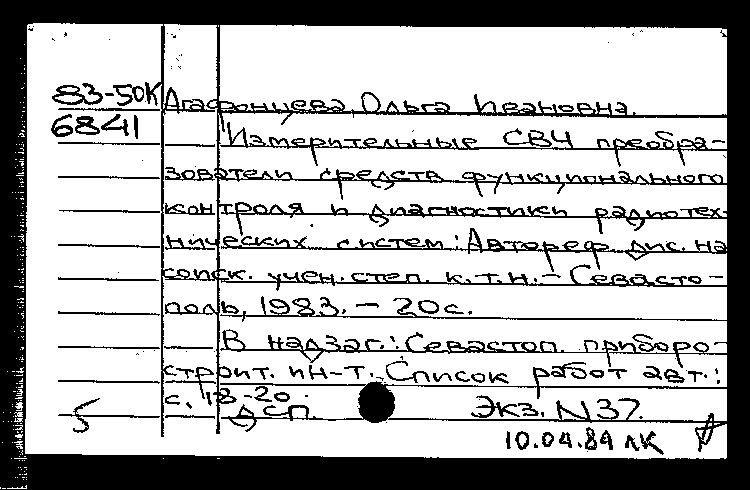 83-50К Агафонцева, Ольга Ивановна.
6841 Измерительные СВЧ преобра-
зователи средств функционального
контроля и диагностики радиотех-
нических систем: Автореф. дис. на
соиск. учен. степ. к.т.н. - Севасто-
поль, 1983. - 20 с.
В надзаг.: Севастоп. приборо-
строит. ин-т. Список работ авт.:
с. 18-20
5 ДСП. Экз. N37.
10.04.84 ЛК